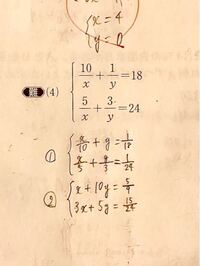 x = 4
y = 0
(4) 10/x + 1/y = 18
5/x + 3/y = 24
① x/10 + y = 1/18
x/5 + y/3 = 1/24
② x + 10y = 5/9
3x + 5y = 15/24